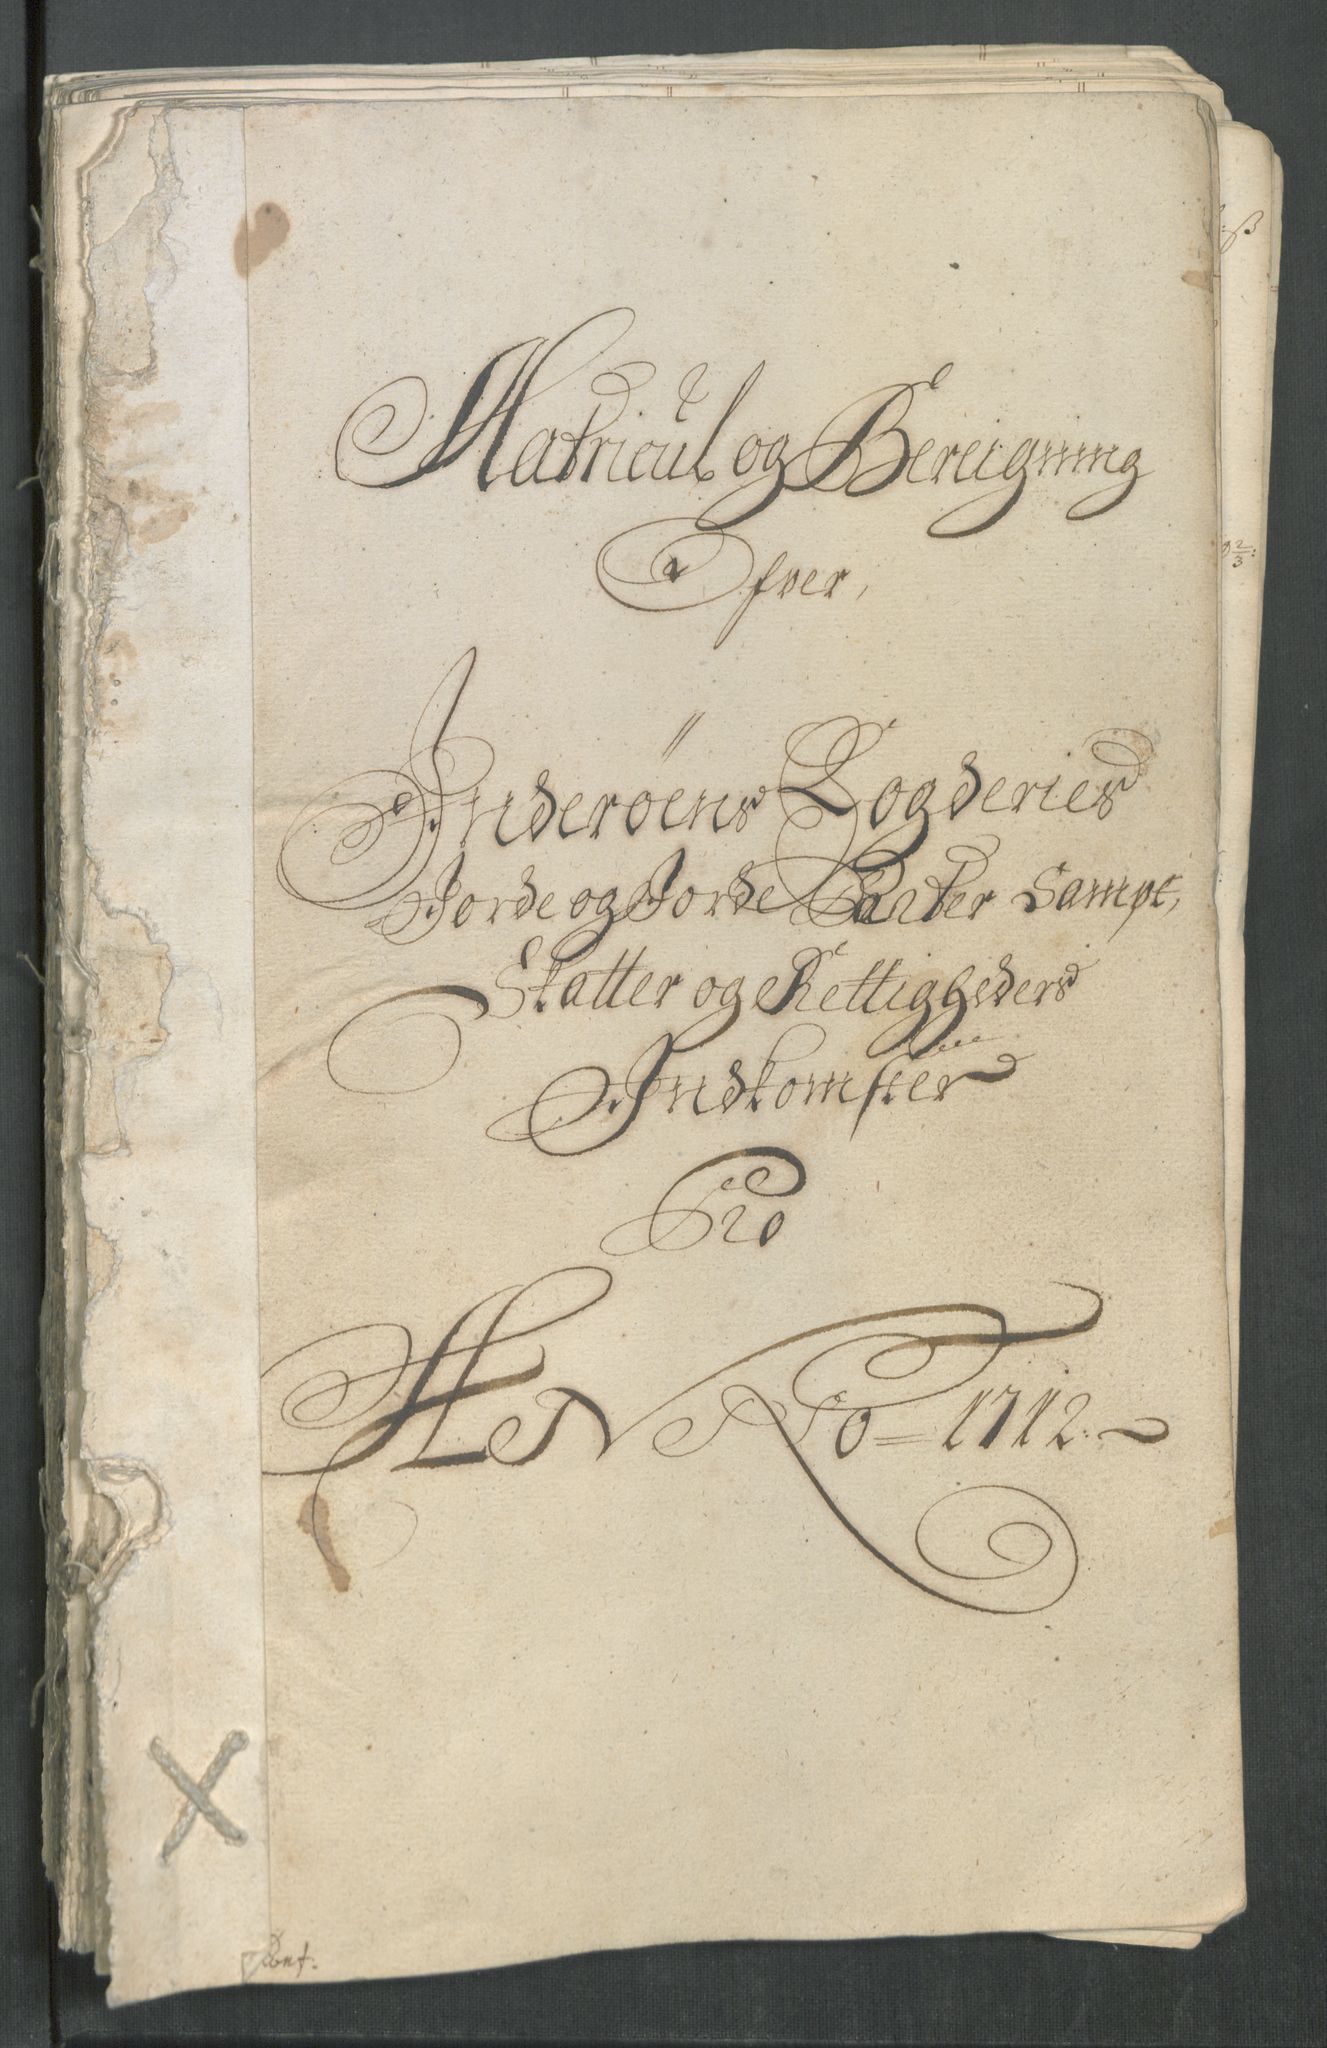 Matricul og Bereigning
Ofver,
Inderöens Fogderies
Jorde og Jorde Parter Sampt,
Skatter og Rettigheders
Indkomster
Pro
ANNO = 1712.